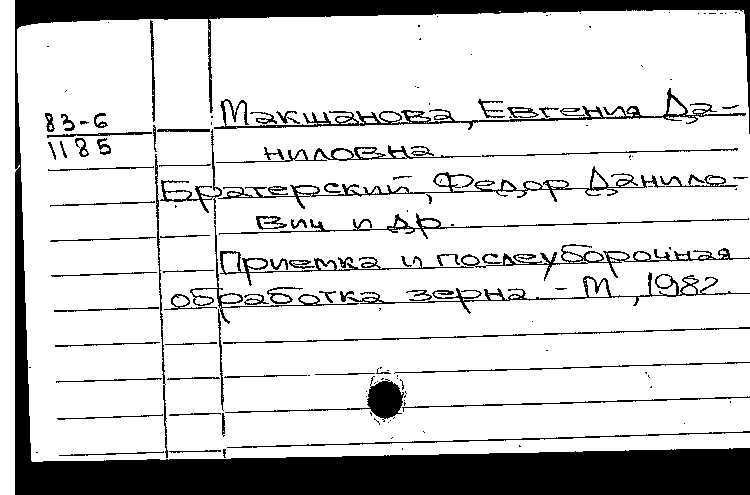 83-6
1185
Макшанова, Евгения Да-
ниловна
Братерский, Федор Данило-
вич и др.
Приемка и послеуборочная
обработка зерна. - М, 1982.